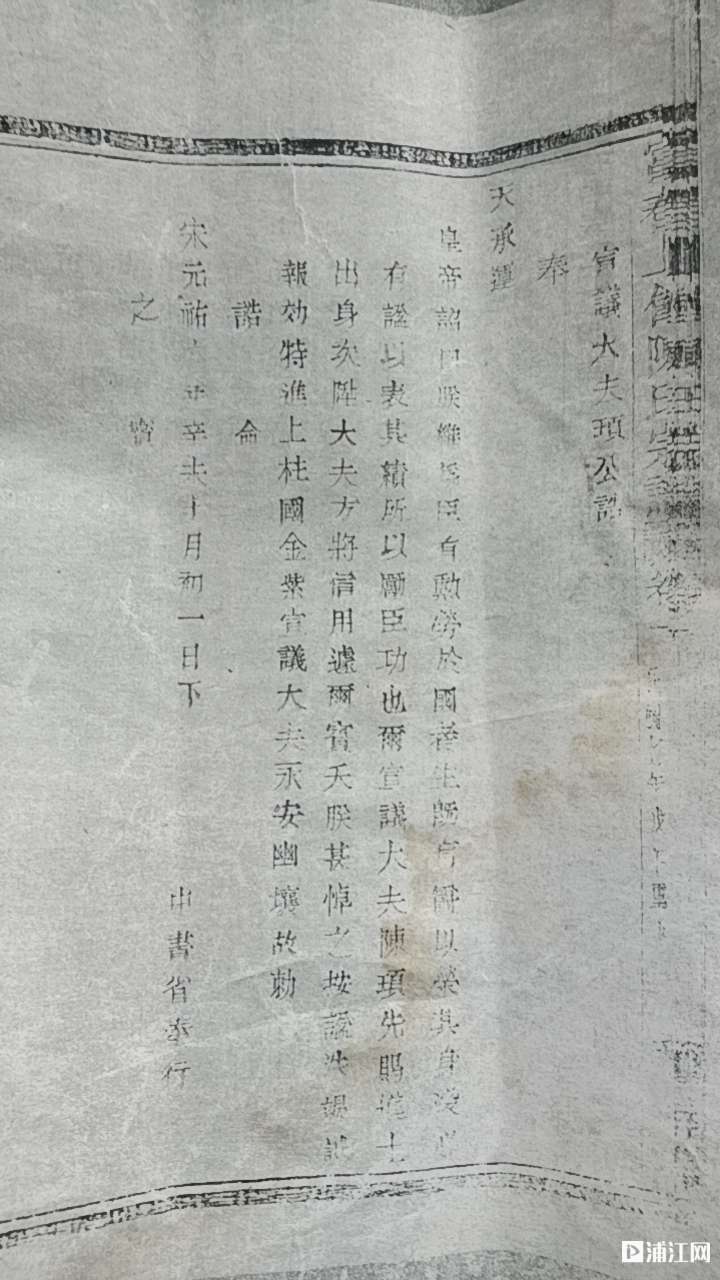 宣議大夫頊公誥
奉
天承運
皇帝詔曰朕維臣有勲勞於國者生既有爵以榮其身沒
有諡以表其績所以勵臣功也爾宣議大夫陳頊先賜進士
出身次陞大夫方將信用遽爾賓天朕甚悼之按諡法竭誠
報効特進上柱國金紫宣議大夫永安幽壤故勅
誥命
宋元祐年辛未十月初一日下 中書省奉行
之寶
浦江网